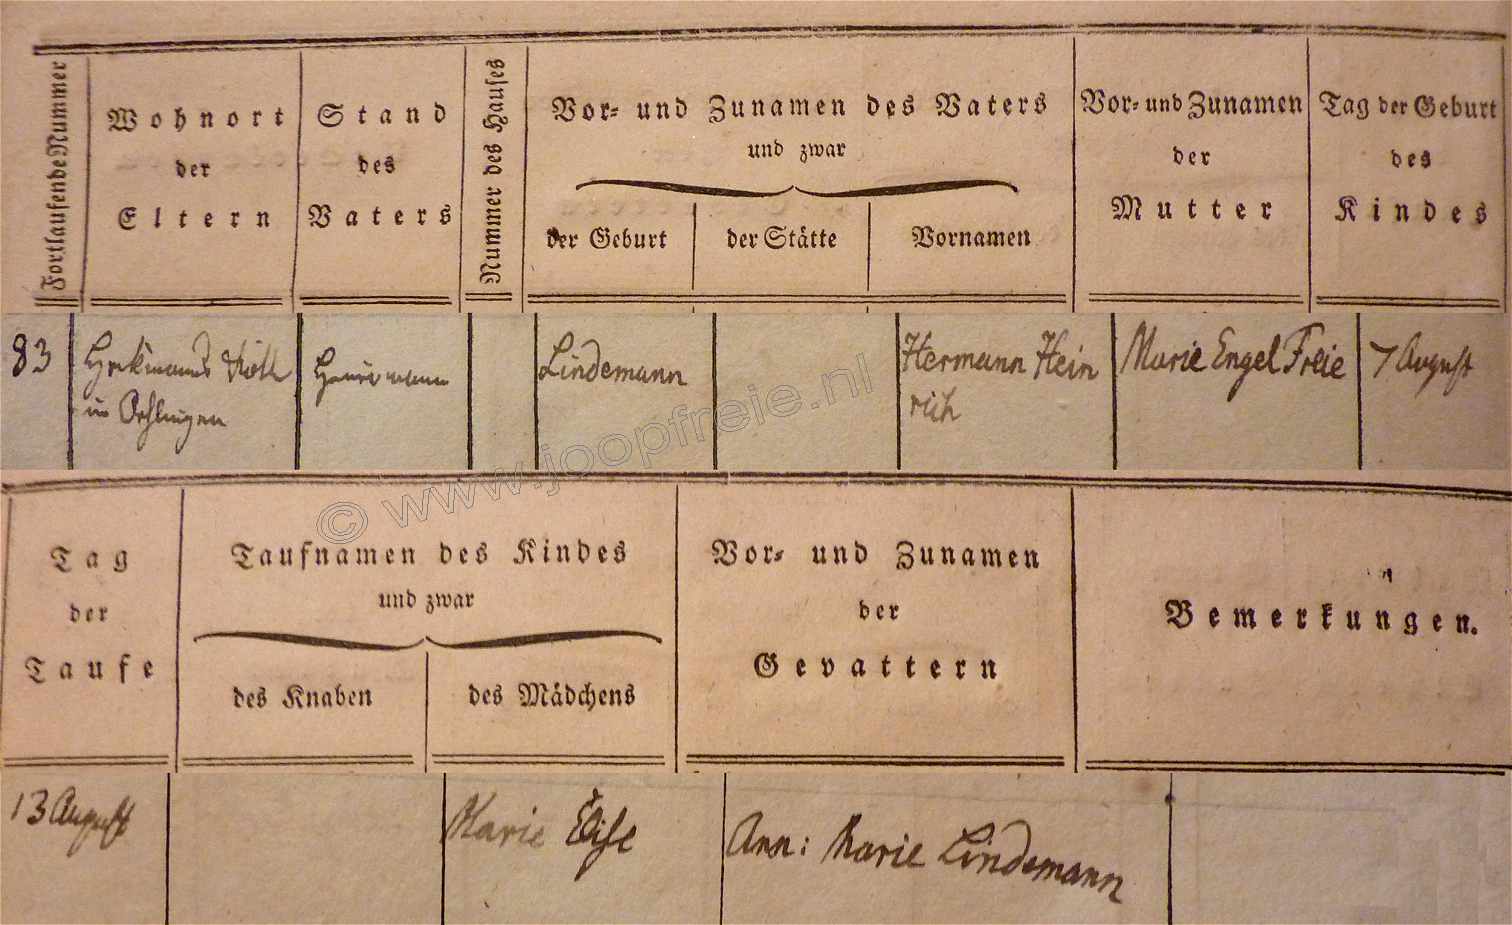 Fortlaufende Nummer
Wohnort
der
Eltern
Stand
des
Vaters
Nummer des Hauses
Vor- und Zunamen des Vaters
und zwar
der Geburt
der Stätte
Vornamen
Vor- und Zunamen
der
Mutter
Tag der Geburt
des
Kindes
83
in
Lindemann
Hermann Hein
rich
Marie Engel Freie
7 August
© www.joopfreie.nl
Tag
der
Taufe
Taufnamen des Kindes
und zwar
des Knaben
des Mädchens
Vor- und Zunamen
der
Gevattern
Bemerkungen.
13 August
Marie Elise
Ann: Marie Lindemann